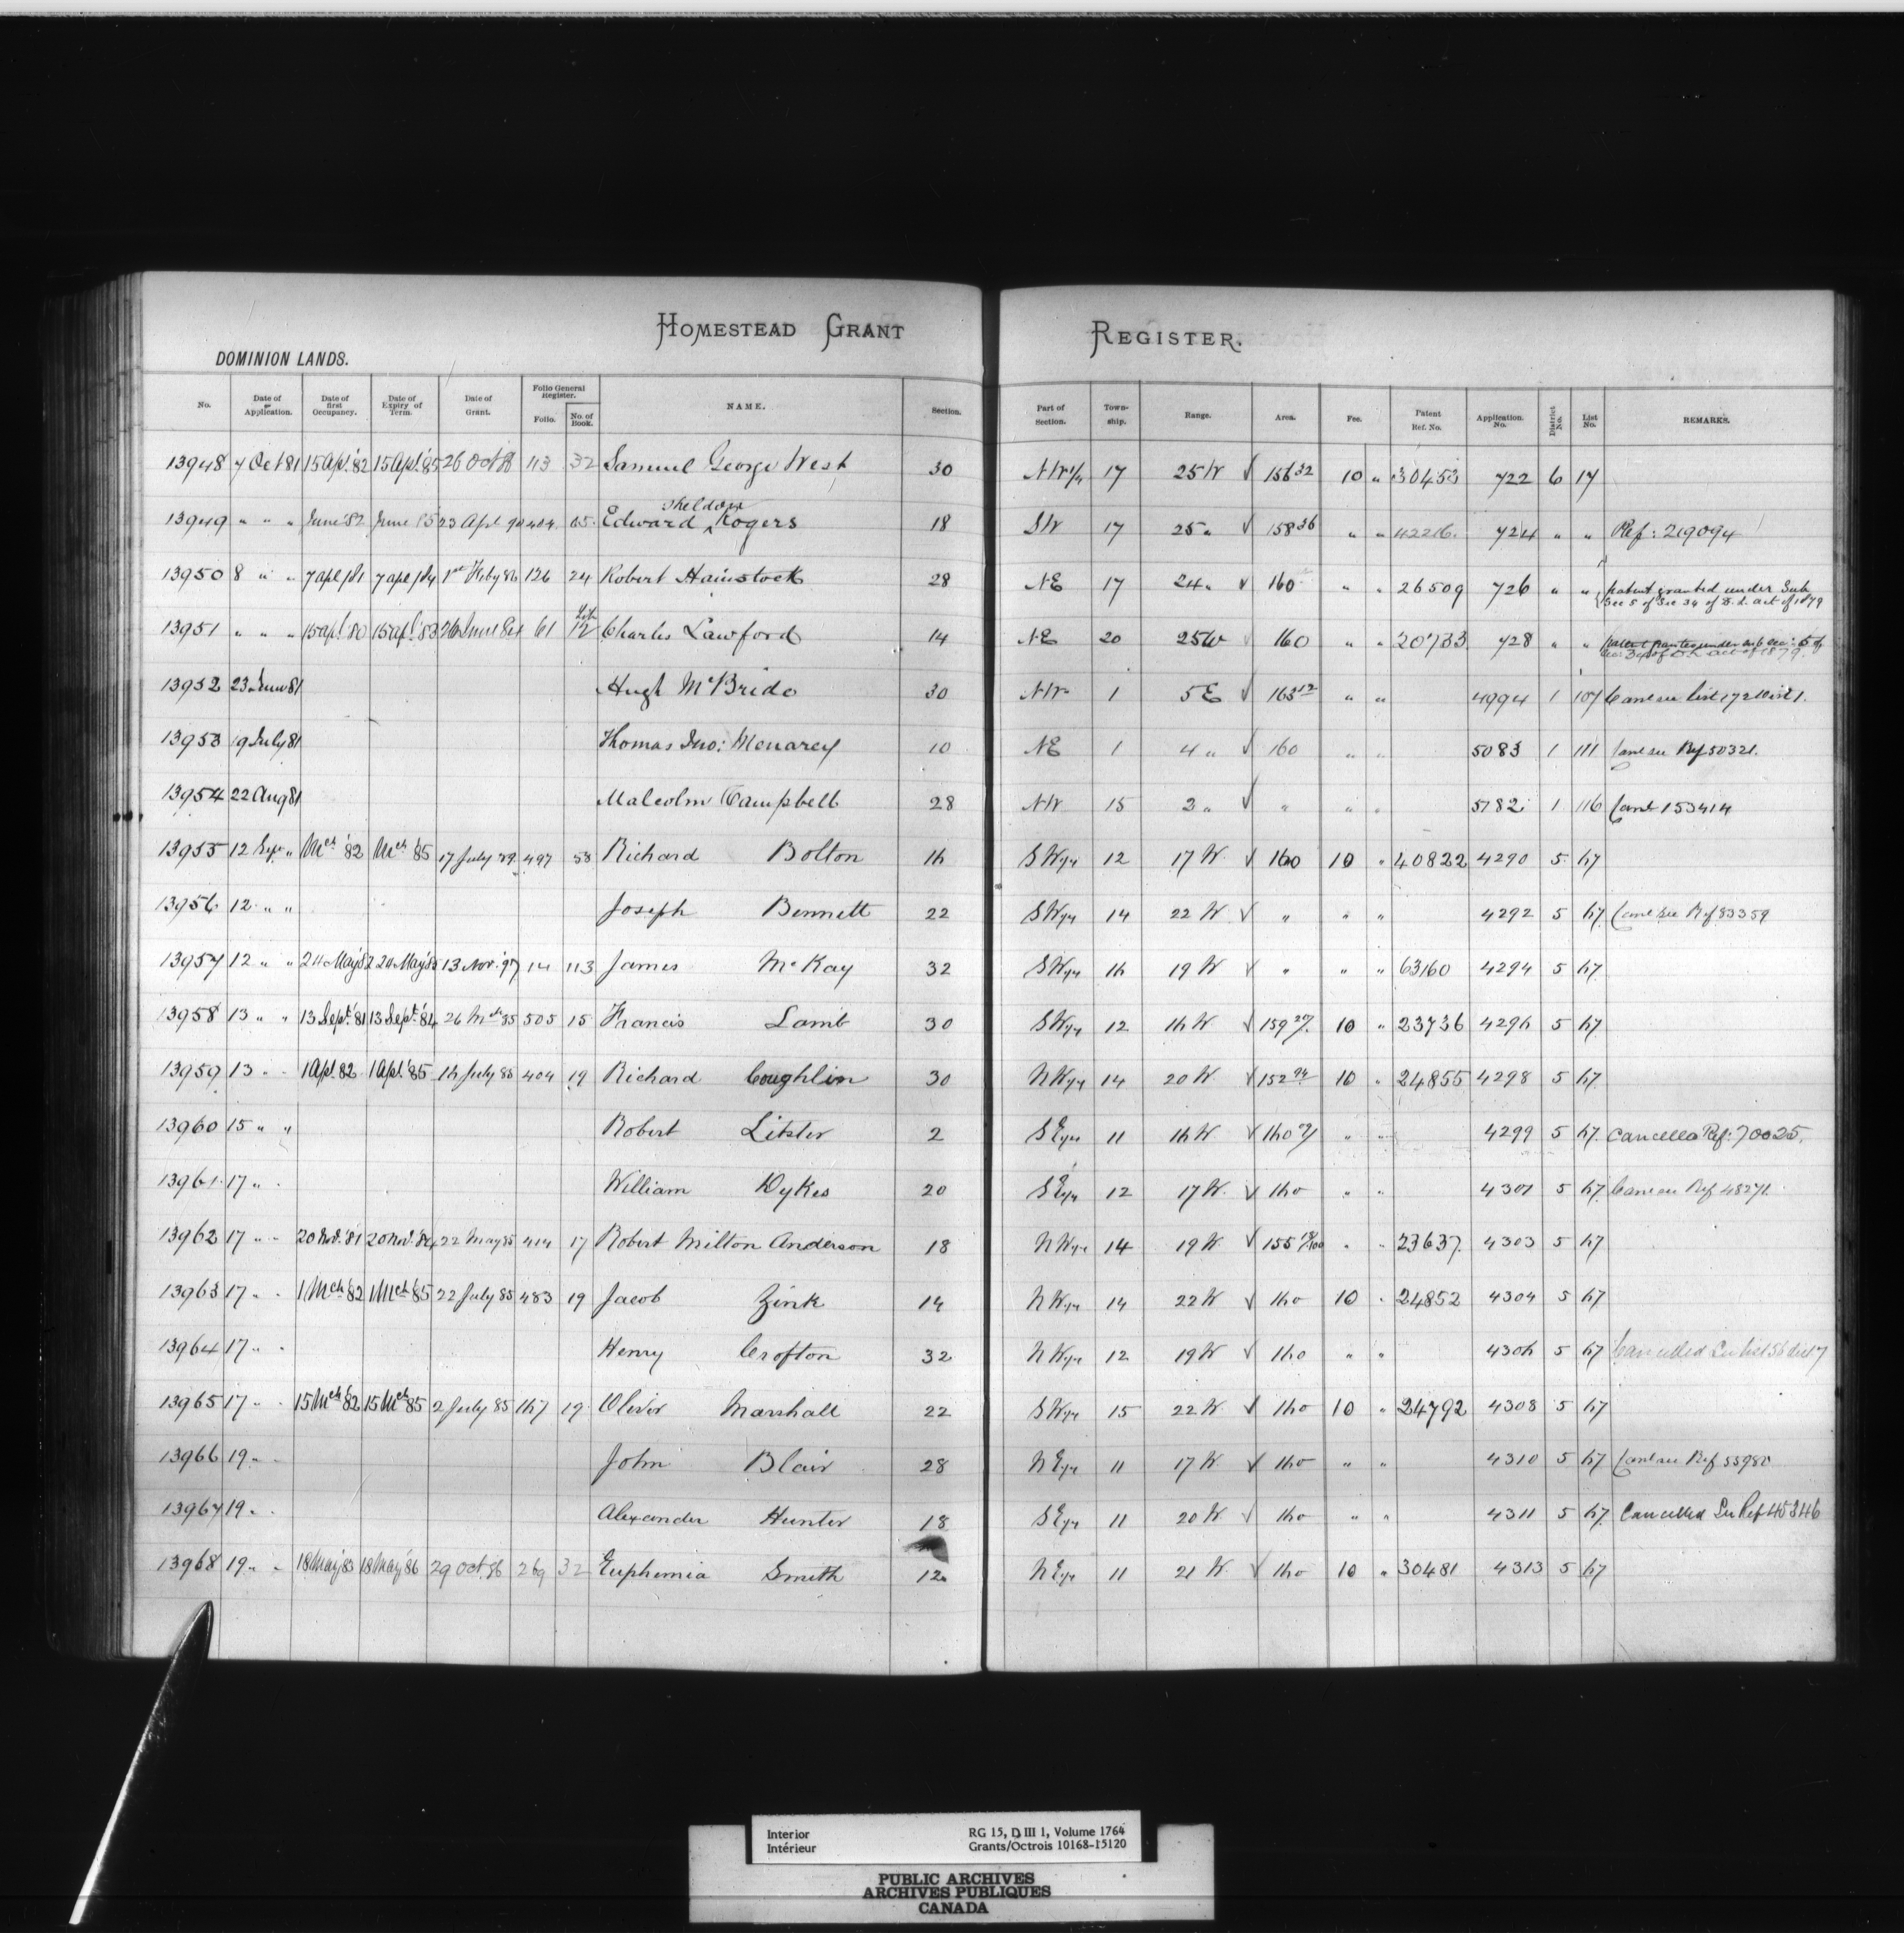 HOMESTEAD GRANT REGISTER.
DOMINION LANDS.
No. Date of Application. Date of first Occupancy. Date of Expiry of Term. Date of Grant. Folio General Register. Folio. No. of Book. NAME. Section. Part of Section. Town-ship. Range. Area. Fee. Patent Ref. No. Application. No. District No. List No. REMARKS.
13948 7 Oct 81 15 Apl. '82 15 Apl. '85 26 Oct 86 113 32 Samuel George West 30 NW 1/4 17 25 W √ 156 32 10 " 30453 722 6 17
13949 " " " June '82 June 85 23 Apl 90 404 65 Edward Sheldon Rogers 18 SW 17 25 " √ 158 36 " " 42216. 724 " " Ref: 219094
13950 8 " " 7 apl /81 7 apl /84 1st Feby 86 126 24 Robert Hainstock 28 NE 17 24 " √ 160 " " 26509 726 " " patent granted under Sub Sec 5 of Sec 34 of D. L. act of 1879
13951 " " " 15 apl. 80 15 apl. 83 26 June 84 61 12 Charles Lawford 14 NE 20 25 W √ 160 " " 20733 728 " " patent granted under sub sec: 5 of sec 34 of D L act of 1879.
13952 23 June 81 Hugh McBride 30 NW 1 5 E √ 163 12 " " 4994 1 107 Canc see list 172 Dist 1.
13953 19 July 81 Thomas Jno: Menarey 10 NE 1 4 " √ 160 " " 5083 1 111 Canc see Ref 50321.
13954 22 Aug 81 Malcolm Campbell 28 NW 15 2 " √ " " " 5782 1 116 Canc 153414
13955 12 Sept " Mch '82 Mch '85 17 July 89 497 53 Richard Bolton 16 SW 1/4 12 17 W. √ 160 10 " 40822 4290 5 67
13956 12 " " Joseph Bennett 22 SW 1/4 14 22 W √ " " " 4292 5 67 Canc see Ref 83359
13957 12 " " 24 May 82 24 May '85 13 Nov. '97 14 113 James McKay 32 SW 1/4 16 19 W √ " " " 63160 4294 5 67
13958 13 " " 13 Sept. '81 13 Sept. '84 26 Mch 85 505 15 Francis Lamb 30 SW 1/4 12 16 W √ 159 20/ 10 " 23736 4296 5 67
13959 13 " " 1 Apl. 82 1 Apl. '85 16 July 85 404 19 Richard Coughlin 30 NW 1/4 14 20 W √ 152 94 10 " 24855 4298 5 67
13960 15 " " Robert Litster 2 SE 1/4 11 16 W √ 160 " " 4299 5 67 Cancelled Ref: 70025.
13961 17 " " William Dykes 20 SE 1/4 12 17 W. √ 160 " " 4301 5 67 Canc see Ref 48271
13962 17 " " 20 Nov. '81 20 Nov. '84 22 May 85 414 17 Robert Milton Anderson 18 NW 1/4 14 19 W √ 155 " " 23637 4303 5 67
13963 17 " " 1 Mch '82 1 Mch '85 22 July 85 483 19 Jacob Zink 14 NW 1/4 14 22 W √ 160 10 " 24852 4304 5 67
13964 17 " " Henry Crofton 32 NW 1/4 12 19 W √ 160 " " 4306 5 67 Cancelled See list 56 dist 7
13965 17 " " 15 Mch 82 15 Mch 85 2 July 85 167 19 Oliver Marshall 22 SW 1/4 15 22 W √ 160 10 " 24792 4308 5 67
13966 19 " " John Blair 28 NE 1/4 11 17 W √ 160 " " 4310 5 67 Canc see Ref 53980
13967 19 " " Alexander Hunter 18 SE 1/4 11 20 W √ 160 " " 4311 5 67 Cancelled See Ref 45346
13968 19 " " 18 May 83 18 May '86 29 Oct. 86 269 32 Euphemia Smith 12 NE 1/4 11 21 W. √ 160 10 " 30481 4313 5 67
Interior RG 15, D III 1, Volume 1764
Intérieur Grants/Octrois 10168-15120
PUBLIC ARCHIVES
ARCHIVES PUBLIQUES
CANADA